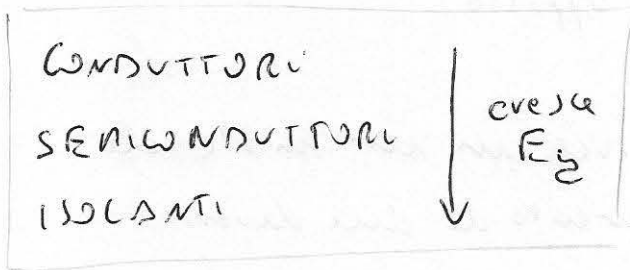 CONDUTTORI
SEMICONDUTTORI
ISOLANTI
cresce
Eg